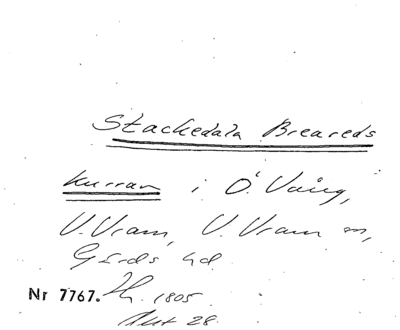 Stackedala Breareds
Kurran i Ö. Vång,
V. Vram, V. Vram sn,
Gärds hd
Nr 7767. Jh. 1805
Akt 28.